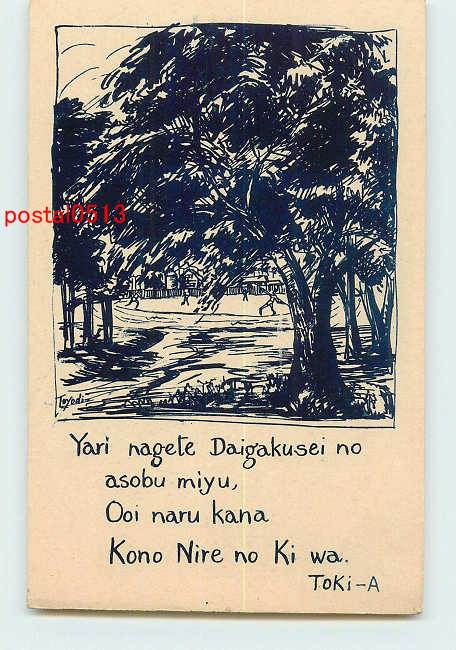 postal0513
Toyodi
Yari nagete Daigakusei no
asobu miyu,
Ooi naru kana
Kono Nire no Ki wa.
TOKI-A